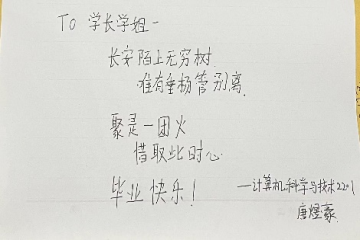 To 学长学姐-
长安陌上无穷树
唯有垂杨管别离
聚是一团火
借取此时心
毕业快乐！
—计算机科学与技术2201
唐煜豪